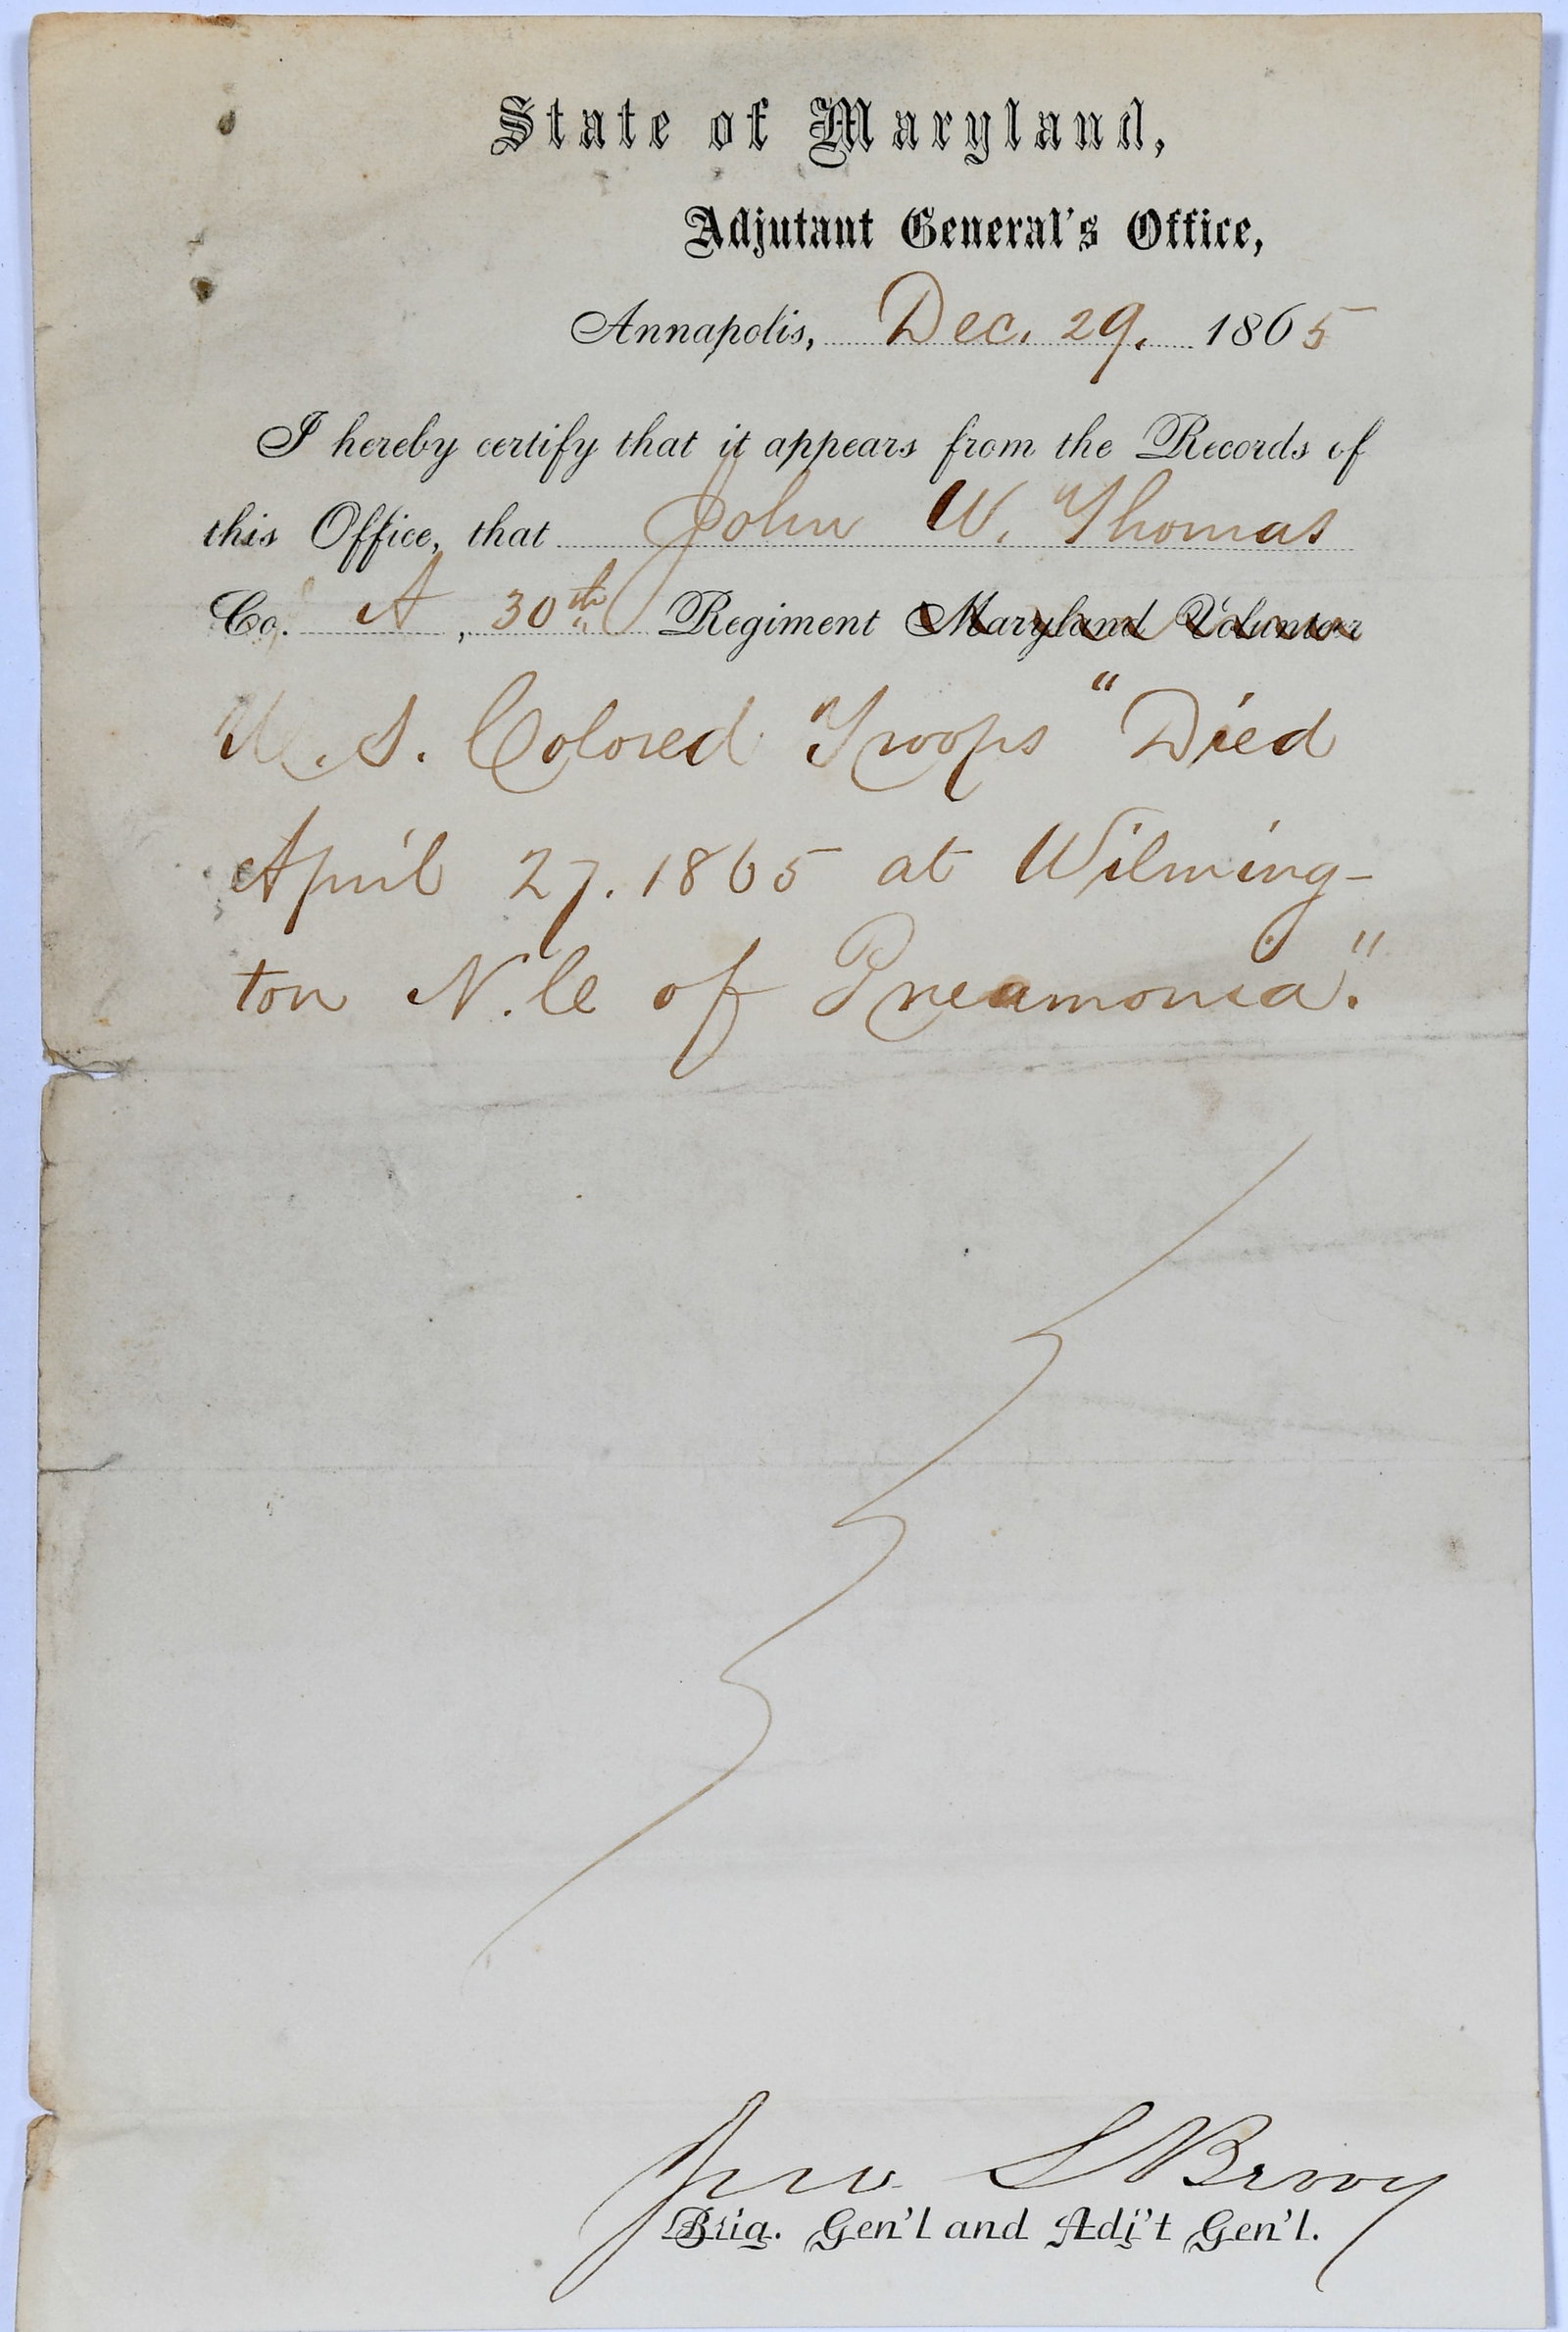 State of Maryland,
Adjutant General's Office,
Annapolis, Dec. 29. 1865
I hereby certify that it appears from the Records of
this Office, that John W. Thomas
Co. A, 30th Regiment Maryland Volunteer
U.S. Colored Troops "Died
April 27. 1865 at Wilming-
ton N.C of Pneamonia."
Jno. S Berry
Brig. Gen'l and Adj't Gen'l.